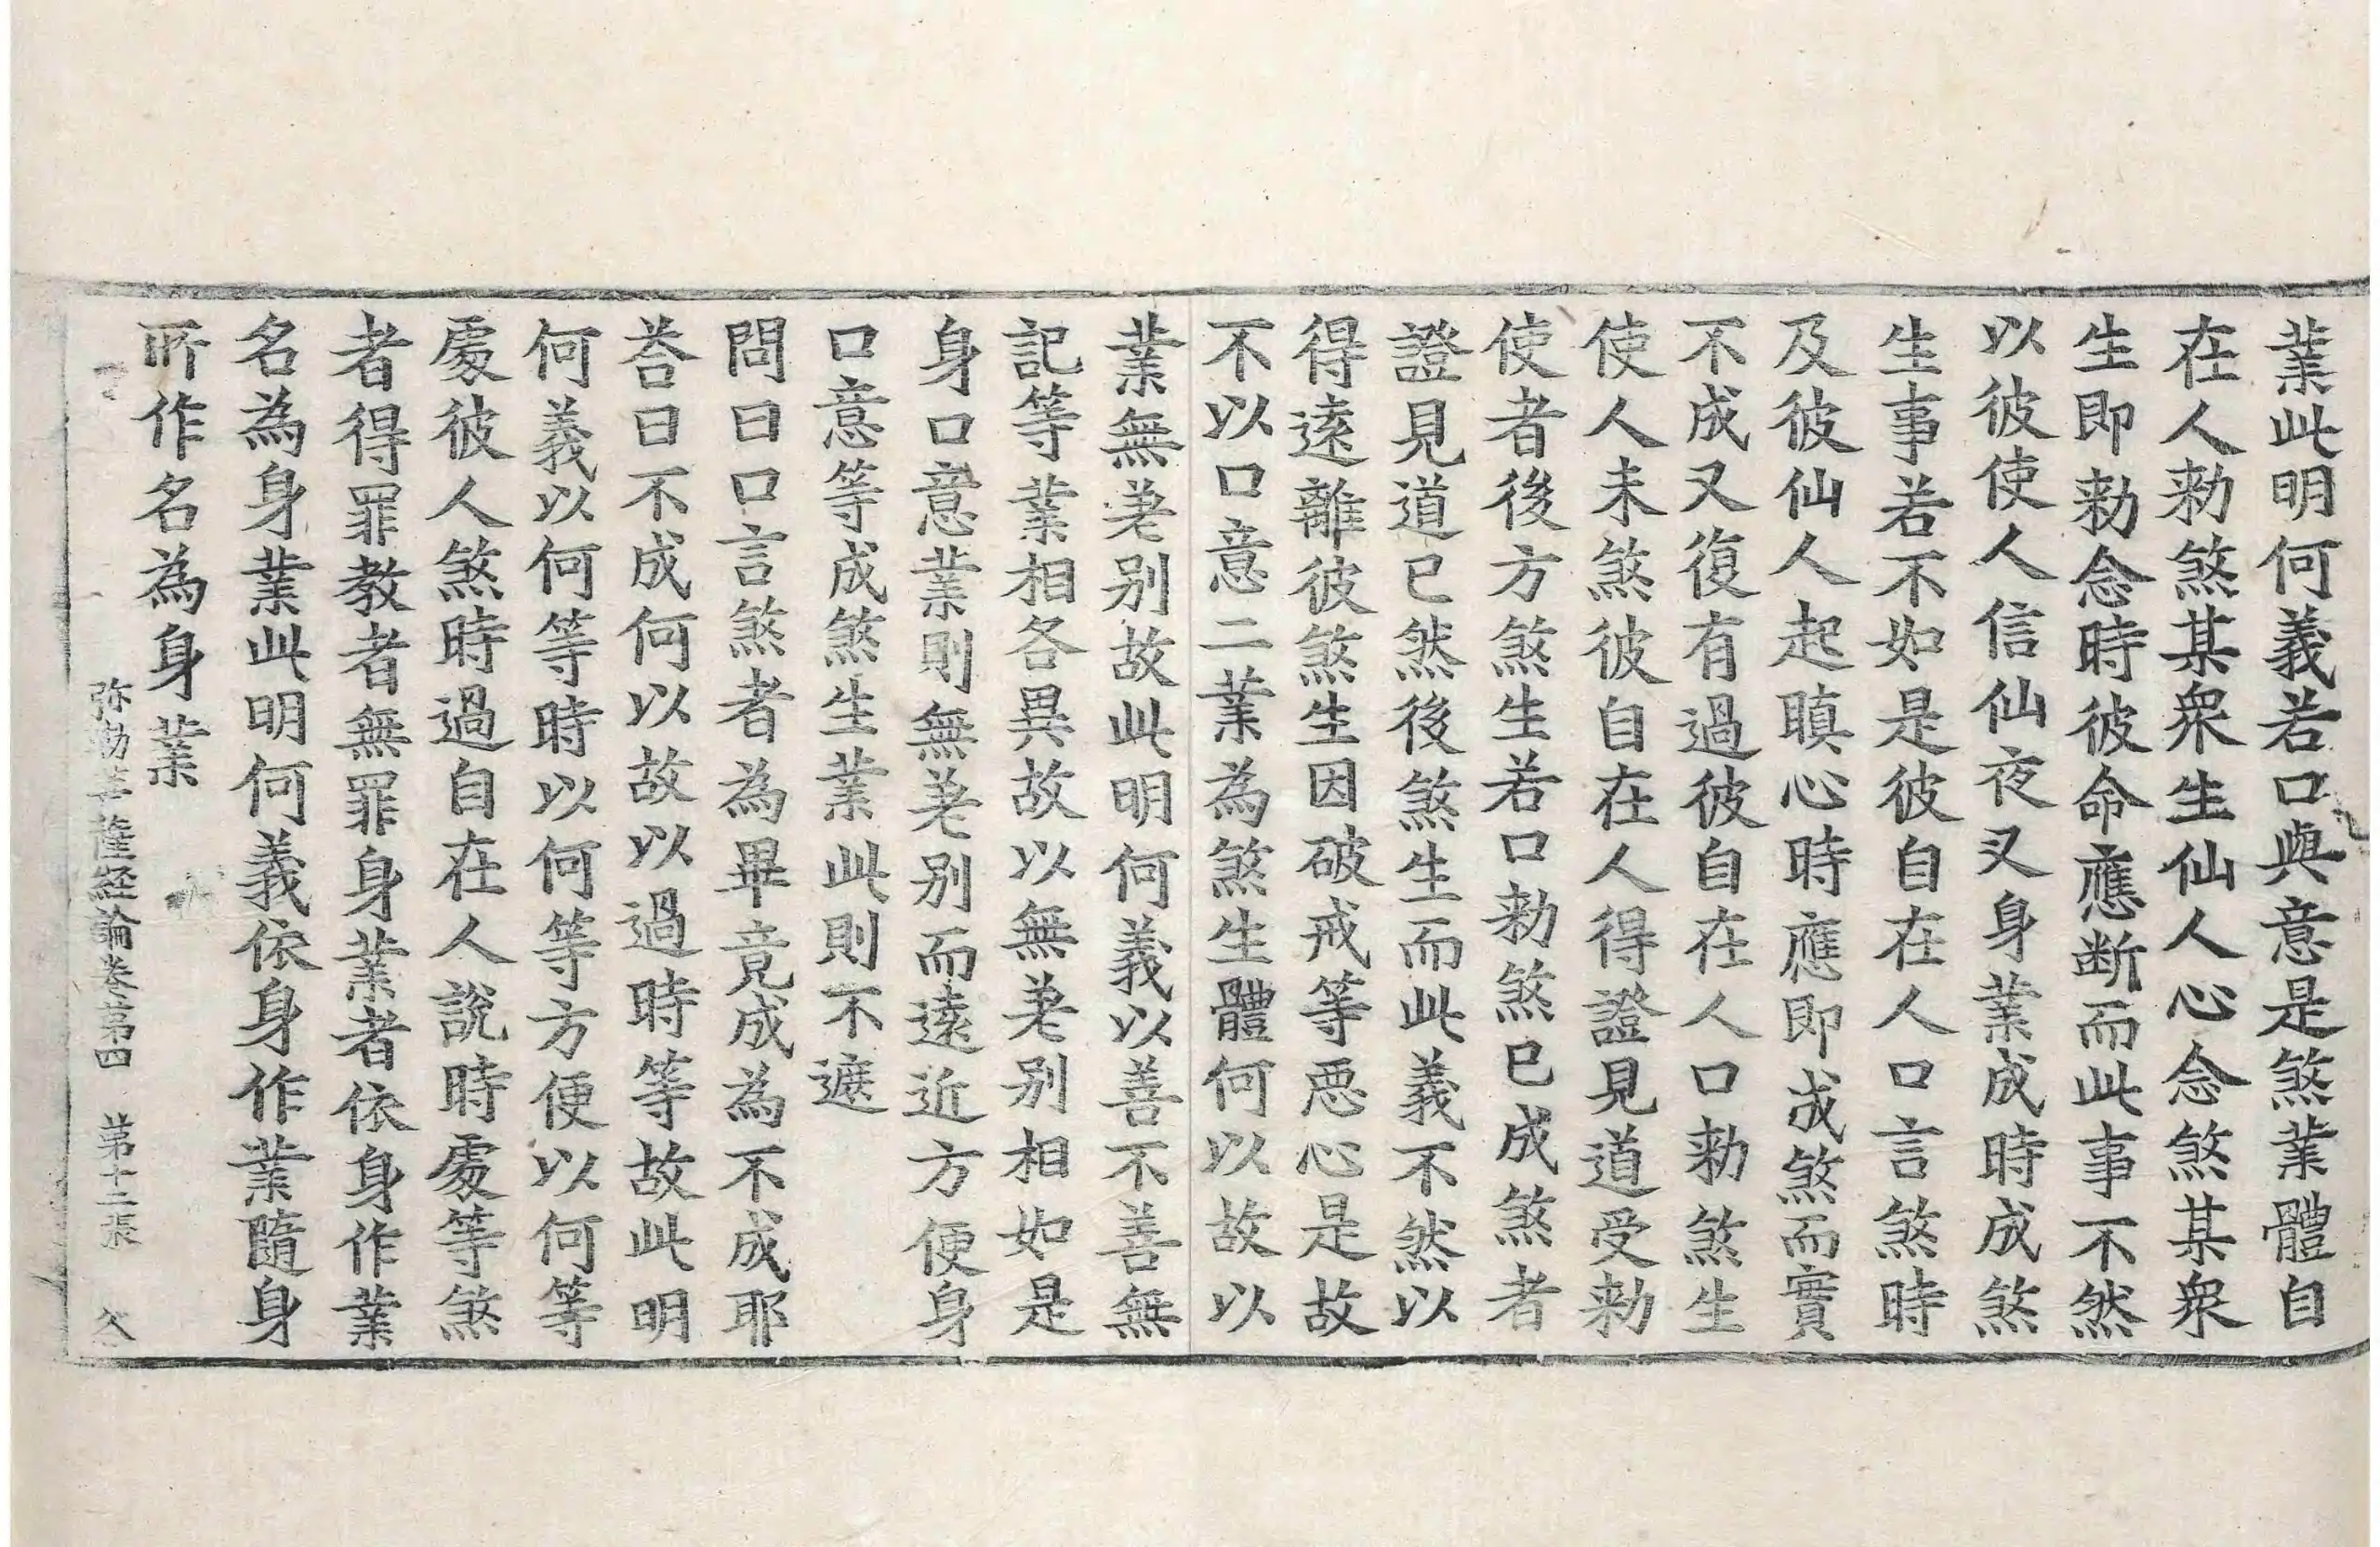 業此明何義若口與意是煞業體自
在人勑煞某衆生仙人心念煞某衆
生即勑念時彼命應断而此事不然
以彼使人信仙夜叉身業成時成煞
生事若不如是彼自在人口言煞時
及彼仙人起瞋心時應即成煞而實
不成又復有過彼自在人口勑煞生
使人未煞彼自在人得證見道受勑
使者後方煞生若口勑煞已成煞者
證見道已然後煞生而此義不然以
得遠離彼煞生因破戒等惡心是故
不以口意二業為煞生體何以故以
業無差别故此明何義以善不善無
記等業相各異故以無差别相如是
身口意業則無差别而遠近方便身
口意等成煞生業此則不遮
問曰口言煞者為畢竟成為不成耶
荅曰不成何以故以過時等故此明
何義以何等時以何等方便以何等
處彼人煞時過自在人說時處等煞
者得罪教者無罪身業者依身作業
名為身業此明何義依身作業隨身
所作名為身業
弥勒菩薩經論卷第四 第十二張